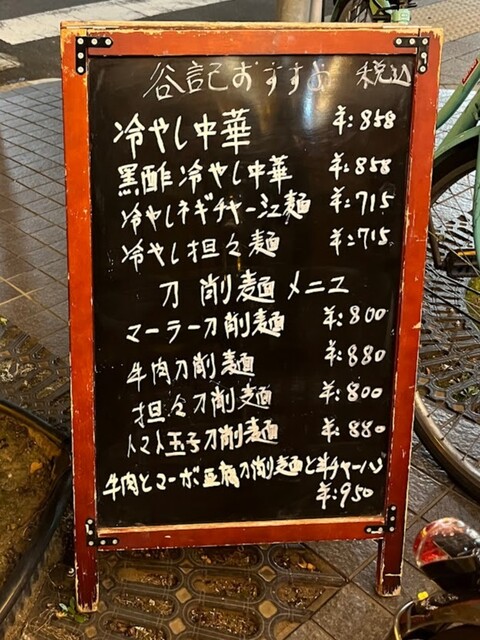 谷記おすすめ 税込
冷やし中華 ¥:858
黒酢冷やし中華 ¥:858
冷やしネギチャーシュー麺 ¥:715
冷やし担々麺 ¥:715
刀削麺メニュー
マーラー刀削麺 ¥:800
牛肉刀削麺 ¥:880
担々刀削麺 ¥:800
トマト玉子刀削麺 ¥:880
牛肉とマーボ豆腐刀削麺と半チャーハン
¥:950